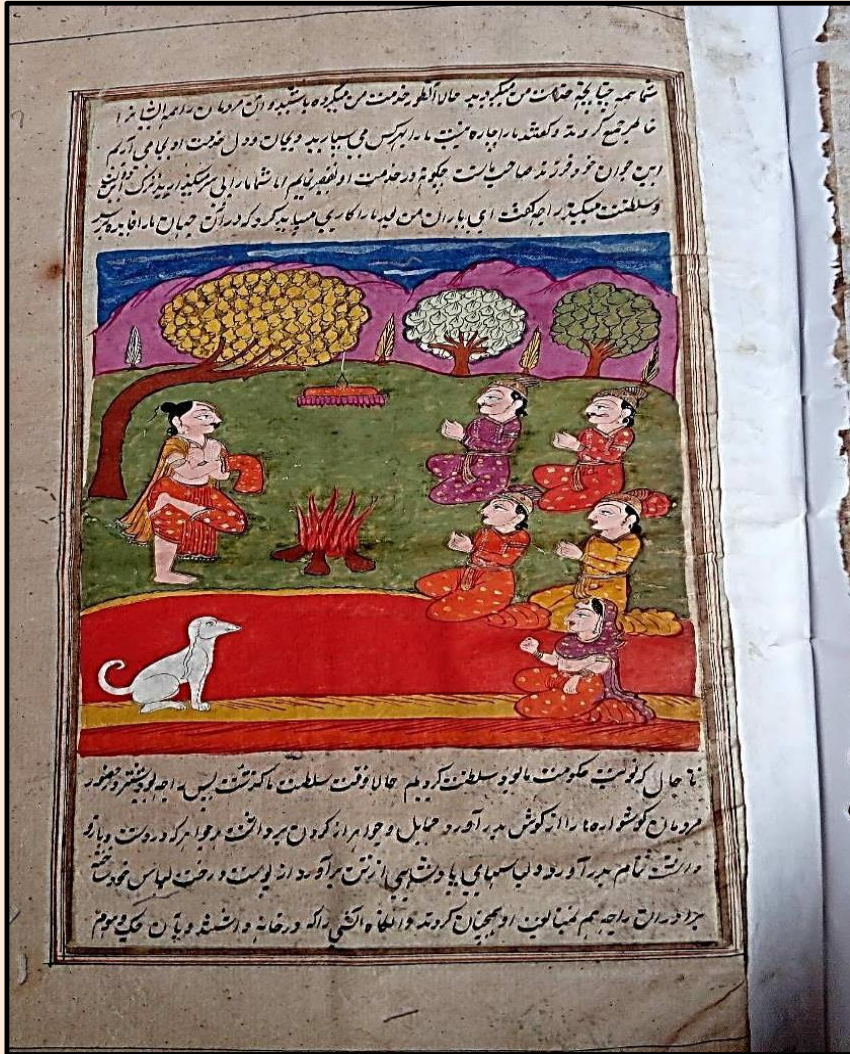 شما همه چنانچه خدمات من میکردید حالا آنطور خدمت من میکرده باشید و این مردمان راجه را
خاطر جمع کردند و گفتند ما را چاره نیست ما را بهر کس می سپارید و بجان و دل خدمت او بجا می آریم
این جوان خود فرزند صاحب ماست چگونه در خدمت او تقصیر نمایم اما شما ما را بی سر میگذارید ترک
و سلطنت میکنید راجه گفت ای یاران من لیدما را کاری میباید کرد که در آن جهان ما را فایده
تا حال که نوبت حکومت ما بود سلطنت کردیم حالا وقت سلطنت ما گذشت پس راجه بحضور
مردمان گوشواره ها را از گوش بدر آورد و حمایل و جواهر از گردن برداشت و جواهر که در دست و بازو
داشت تمام بدر آورد و لباسهای پادشاهی از تن برآورد از پوست درخت لباس خود ساخته
برادران راجه هم بمتابعت او همچنان کردند و آنگاه آتشی را که در خانه داشتند و بآن